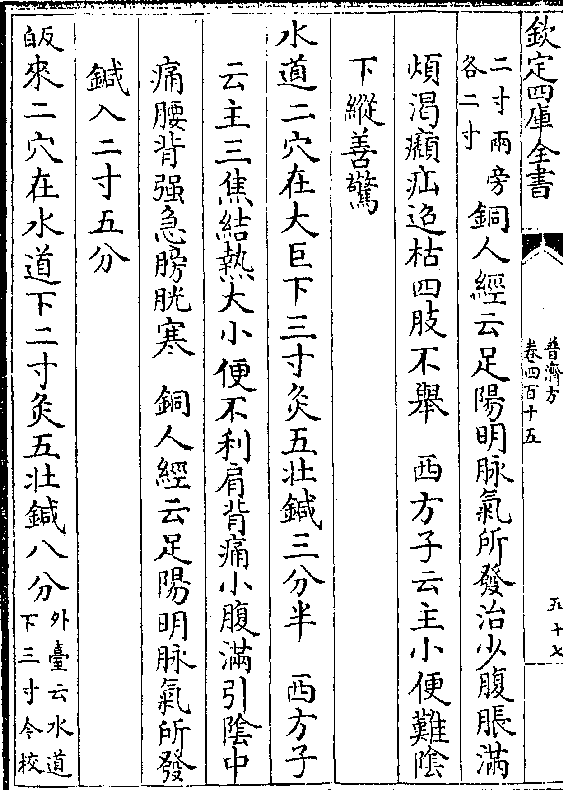 欽定四庫全書
普濟方
卷四百十五
五十七
二寸兩旁
各二寸
銅人經云足陽明脉氣所發治少腹脹滿
煩渴㿗疝𨒪枯四肢不舉　西方子云主小便難陰
下縱善驚
水道二穴在大巨下三寸灸五壯鍼三分半　西方子
云主三焦結熱大小便不利肩背痛小腹滿引陰中
痛腰背强急膀胱寒　銅人經云足陽明脉氣所發
鍼入二寸五分
歸來二穴在水道下二寸灸五壯鍼八分
外臺云水道
下三寸令校